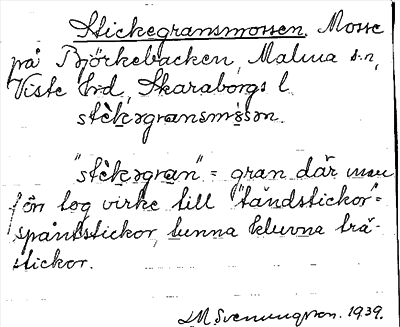 Stickegransmossen. Mosse
på Björkebacken, Malma sn,
Viste hrd, Skaraborgs l.
stèkəgransmåsən.
"stèkəgran" = gran där man
förr tog virke till "tändstickor" =
spånkstickor, tunna kluvna trä-
stickor.
Svenungson. 1939.